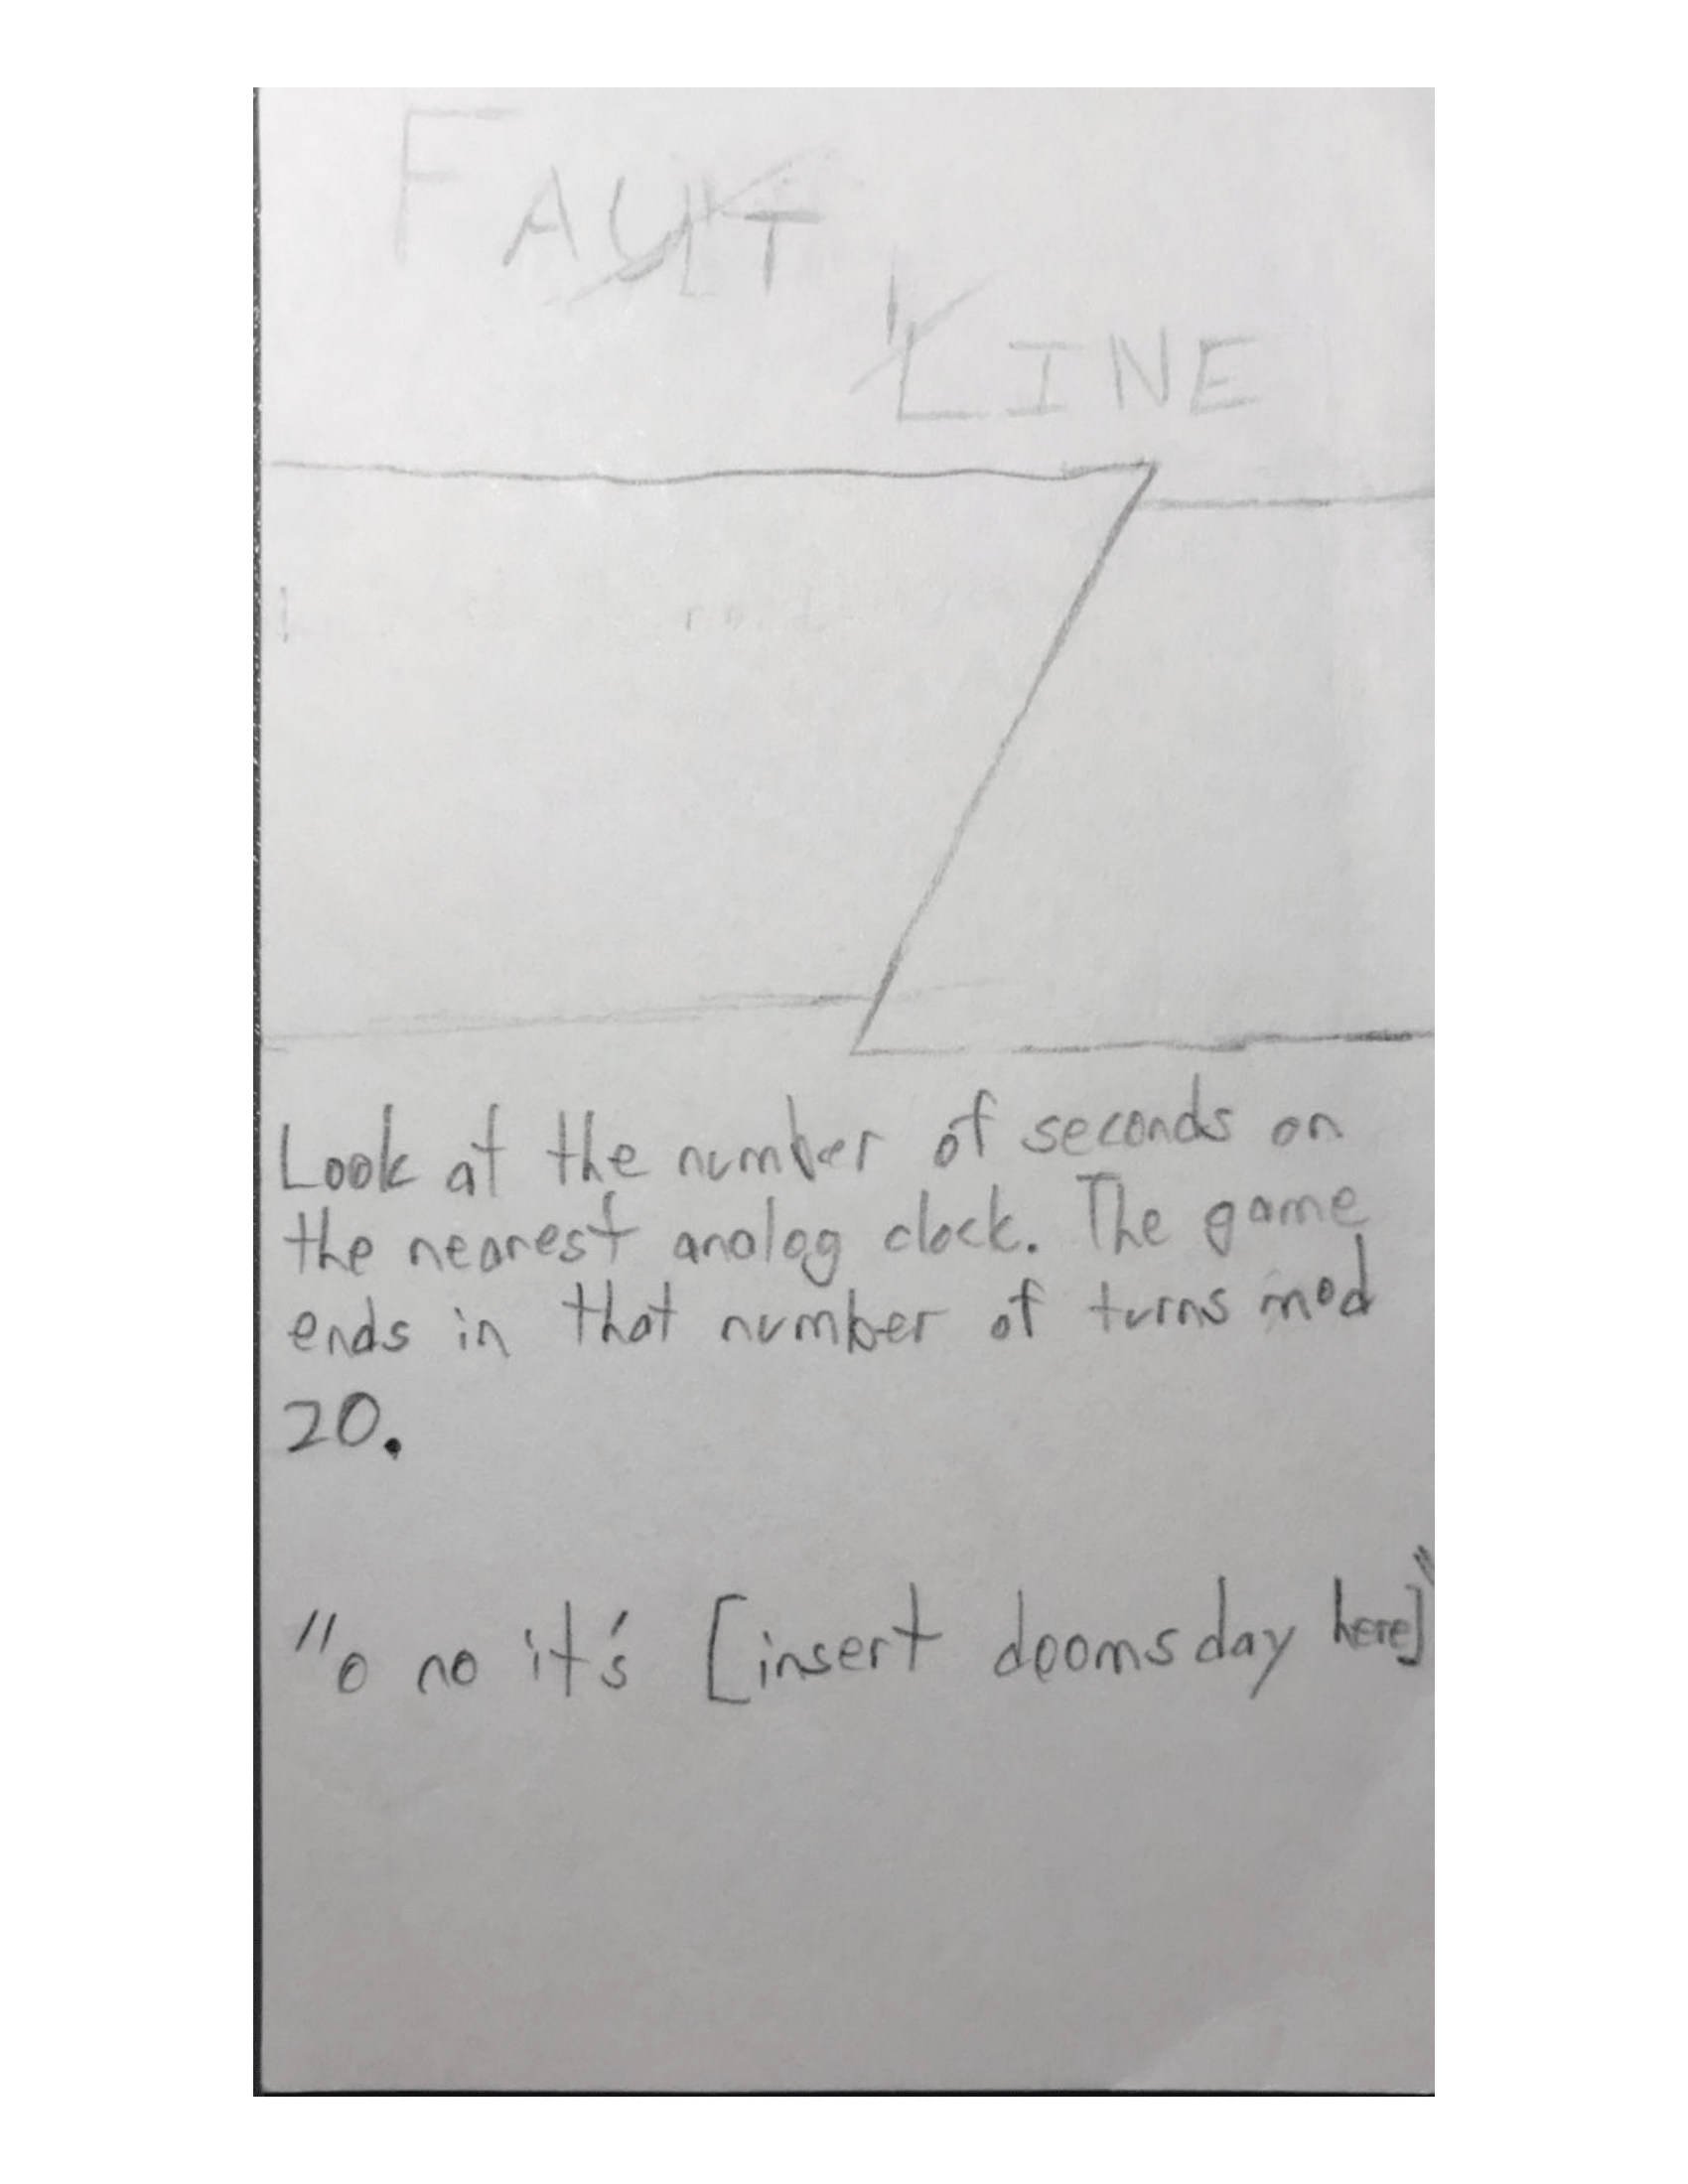 FAULT
LINE
Look at the number of seconds on
the nearest analog clock. The game
ends in that number of turns mod
20.
"o no it's [insert doomsday here]"